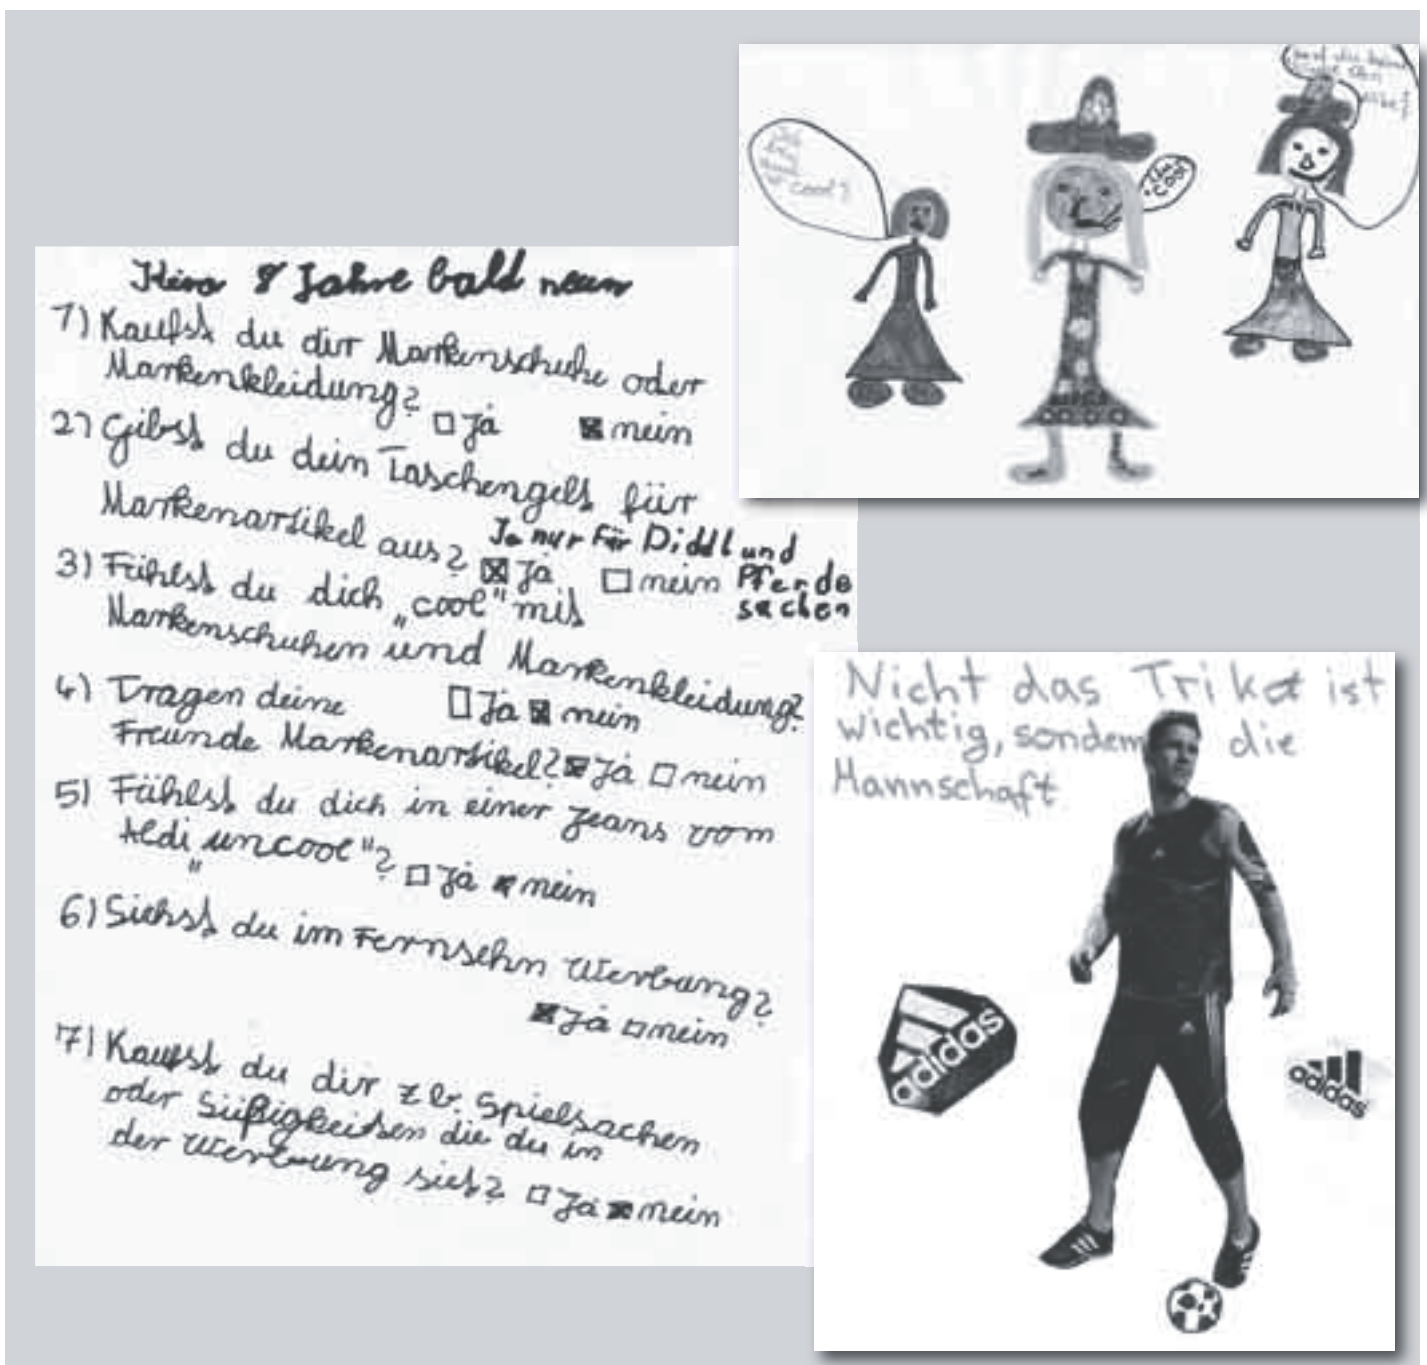 8 Jahre bald neun
1) Kaufst du dir Markenschuhe oder
Markenkleidung? Ja nein
2) Gibst du dein Taschengeld für
Markenartikel aus? Ja nein
Ja nur für Diddl und
Pferde
sachen
3) Fühlst du dich „cool" mit
Markenschuhen und Markenkleidung?
Ja nein
4) Tragen deine
Freunde Markenartikel? Ja nein
5) Fühlst du dich in einer Jeans vom
Aldi „uncool"? Ja nein
6) Siehst du im Fernsehn Werbung?
Ja nein
7) Kaufst du dir z b. Spielsachen
oder Süßigkeiten die du in
der Werbung sieht? Ja nein
cool?
COOL
Nicht das Trikot ist
wichtig, sondern die
Mannschaft
adidas
adidas